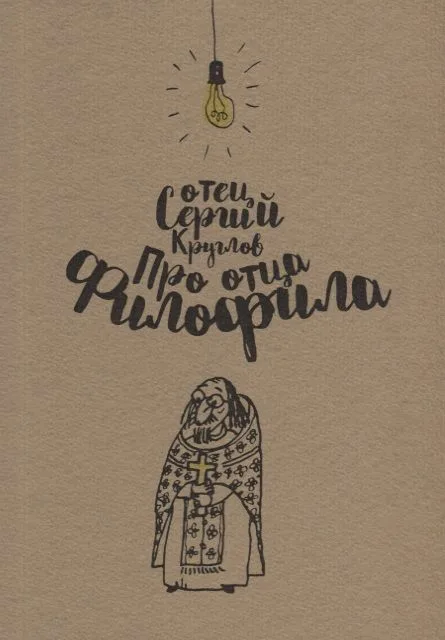 отец
Сергий
Круглов
Про отца
Филофила